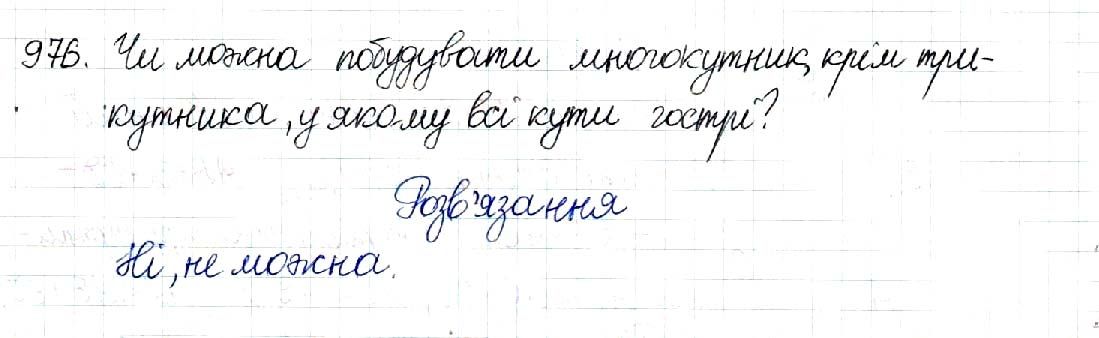 976. Чи можна побудувати многокутник, крім три-
кутника, у якому всі кути гострі?
Розв'язання
Ні, не можна.